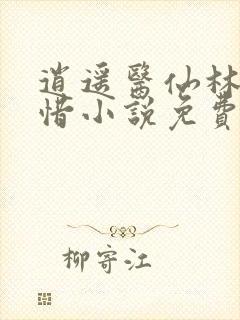 逍遥醫仙林
惜小說免費
柳寄江